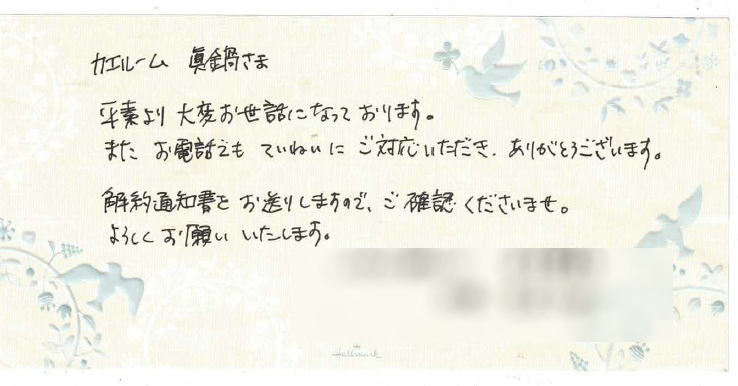 カエルーム 眞鍋さま
平素より大変お世話になっております。
また お電話でも ていねいに ご対応いただき、ありがとうございます。
解約通知書を お送りしますので、ご確認くださいませ。
よろしくお願いいたします。
Hallmark